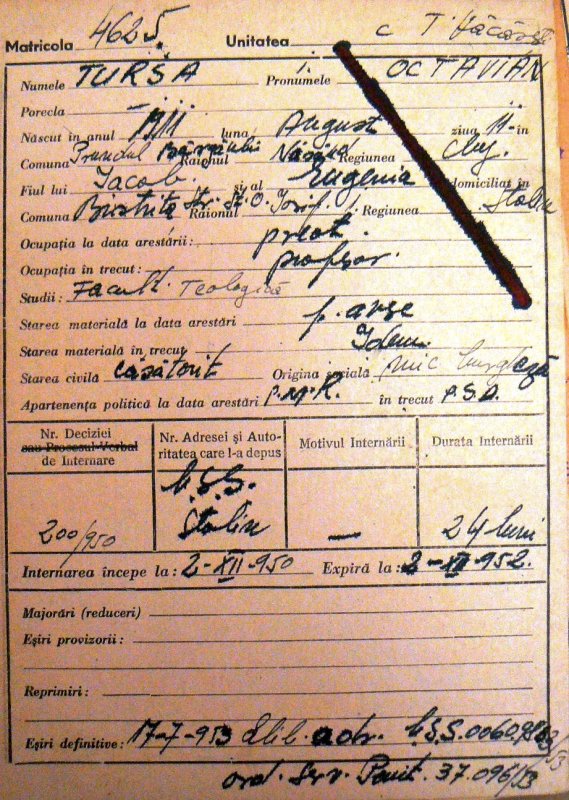 Matricola 4625. Unitatea
Numele TURSA Pronumele OCTAVIAN
Porecla -
Născut în anul 1911 luna August ziua 11 în
Comuna Prundul Bârgăului Raionul Năsăud Regiunea Cluj.
Fiul lui Iacob. și al Eugenia domiciliat în
Comuna Bistrița Str. Șt. O. Iosif Raionul Regiunea Stalin
Ocupația la data arestării: preot.
Ocupația în trecut: profesor.
Studii: Facult. Teologică
Starea materială la data arestări
Starea materială în trecut Idem.
Starea civilă căsătorit Origina socială mic burgheză
Apartenența politică la data arestări P.M.R. în trecut P.S.D.
Nr. Deciziei sau Procesul-Verbal de Internare
Nr. Adresei și Autoritatea care l-a depus
Motivul Internării
Durata Internării
200/950
Stalin
—
24 luni
Internarea începe la: 2-XII-950 Expiră la: 2-XII-952.
Majorări (reduceri)
Eșiri provizorii:
Reprimiri:
Eșiri definitive: 17-7-953 Elib. adr.
ord. Serv. Penit. 37.096/53